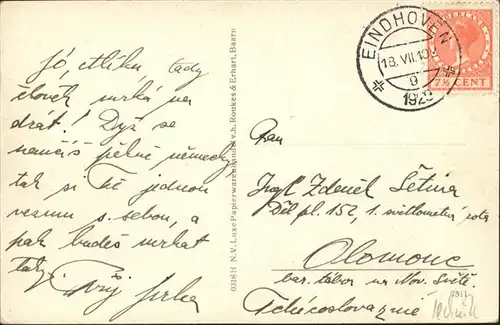 Jó, Mliko, tady
člověk mrká na
drát! Dyž se
naučíš pěkně německy
tak si Tě jednou
vezmu s sebou, a
pak budeš mrkat
taky.
Tvůj
0318H N.V. Luxe Papierwarenhandel v.h. Roukes & Erhart, Baarn
EINDHOVEN
18.VII.19
9
1929
7½ CENT
Pan
Zdeněk Šetina
Děl. pl. 152, 1. světlometná rota
Olomouc
bar. tábor na Nov. Světě.
Tchécoslovaquie